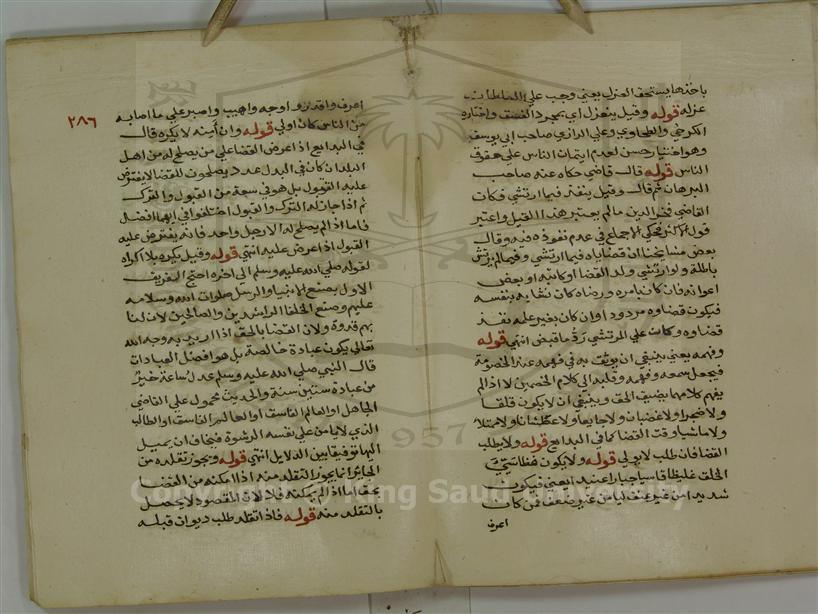 باخذها يستحق العزل يعني وجب علي السلطان
عزله قوله وقيل ينعزل اي بمجرد الفسق واختاره
الكرخي والطحاوي وعلي الرازي صاحب ابي يوسف
وهو اختيار حسن لعدم ايتمان الناس علي حقوق
الناس قوله قال قاضي حكاه عنه صاحب
البرهان ثم قال وقيل ينفذ فيما ارتشي فكان
القاضي فخر الدين مالم يعتبر هذا القيل واعتبر
قول الاكثر فحكي الاجماع في عدم نفوذه فيه وقال
بعض مشايخنا ان قضاياه فيما ارتشي وفيما لم يرتش
باطلة ولو ارتشي ولد القضا او كاتبه او بعض
اعوانه فان كان بامره ورضاه كان كتقايه بنفسه
فيكون قضاوه مردودا وان كان بغير علمه نفذ
قضاوه وكان علي المرتشي رد ما قبض انتهي قوله
وفهمه يعني ينبغي ان يوثق به في فهمه عند الخصومة
فيجعل سمعه وفهمه وقلبه الي كلام الخصمين لا اذا لم
يفهم كلامهما يضيع الحق وينبغي ان لا يكون قلقا
ولا ضجرا ولا غضبان ولا جايعا ولا عطشانا ولا ممتلا
ولا ماشيا وقت القضا كما في البدايع قوله ولا يطلب
القضا فان طلب لا يولي قوله ولا يكون فظا سيئ
الخلق غليظا قاسيا جبارا عنيدا يعني فيكون
شديدا من غير عنف لينا من غير ضعف فمن كان
اعرف
٢٨٦
اعرف واقدر واوجه واهيب واصبر علي ما اصابه
من الناس كان اولي قوله وان امنه لا يكره قال
في البدايع اذا عرض القضا علي من يصلح له من اهل
البلد ان كان في البلد عدد يصلحون للقضا لا يفترض
عليه القبول بل هو في سعة من القبول والترك
ثم اذا جاز له الترك والقبول اختلفوا في ايهما افضل
فاما اذا لم يصلح له الا رجل واحد فانه يفترض عليه
القبول اذا عرض عليه انتهي قوله وقيل يكره بلا اكراه
لقوله صلي الله عليه وسلم الي اخره احتج الفريق
الاول بصنع الانبيا والرسل صلوات الله وسلامه
عليهم وصنع الخلفا الراشدين والصالحين لان لنا
بهم قدوة ولان القضا بالحق اذا اريد به وجه الله
تعالي يكون عبادة خالصة بل هو افضل العبادات
قال النبي صلي الله عليه وسلم عدل ساعة خير
من عبادة ستين سنة والحديث محمول علي القاضي
الجاهل او العالم الفاسق او العالم الفاسق او الطالب
الذي لا يامن علي نفسه الرشوة فيخاف ان يميل
اليها توفيقا بين الدلايل انتهي قوله ويجوز تقلده من
الجائر انما يجوز التقلد منه اذا امكنه من القضا
بحق اما اذا لم يمكنه فلا لان المقصود لا يحصل
بالتقلد منه قوله فاذا تقلد طلب ديوان قبله